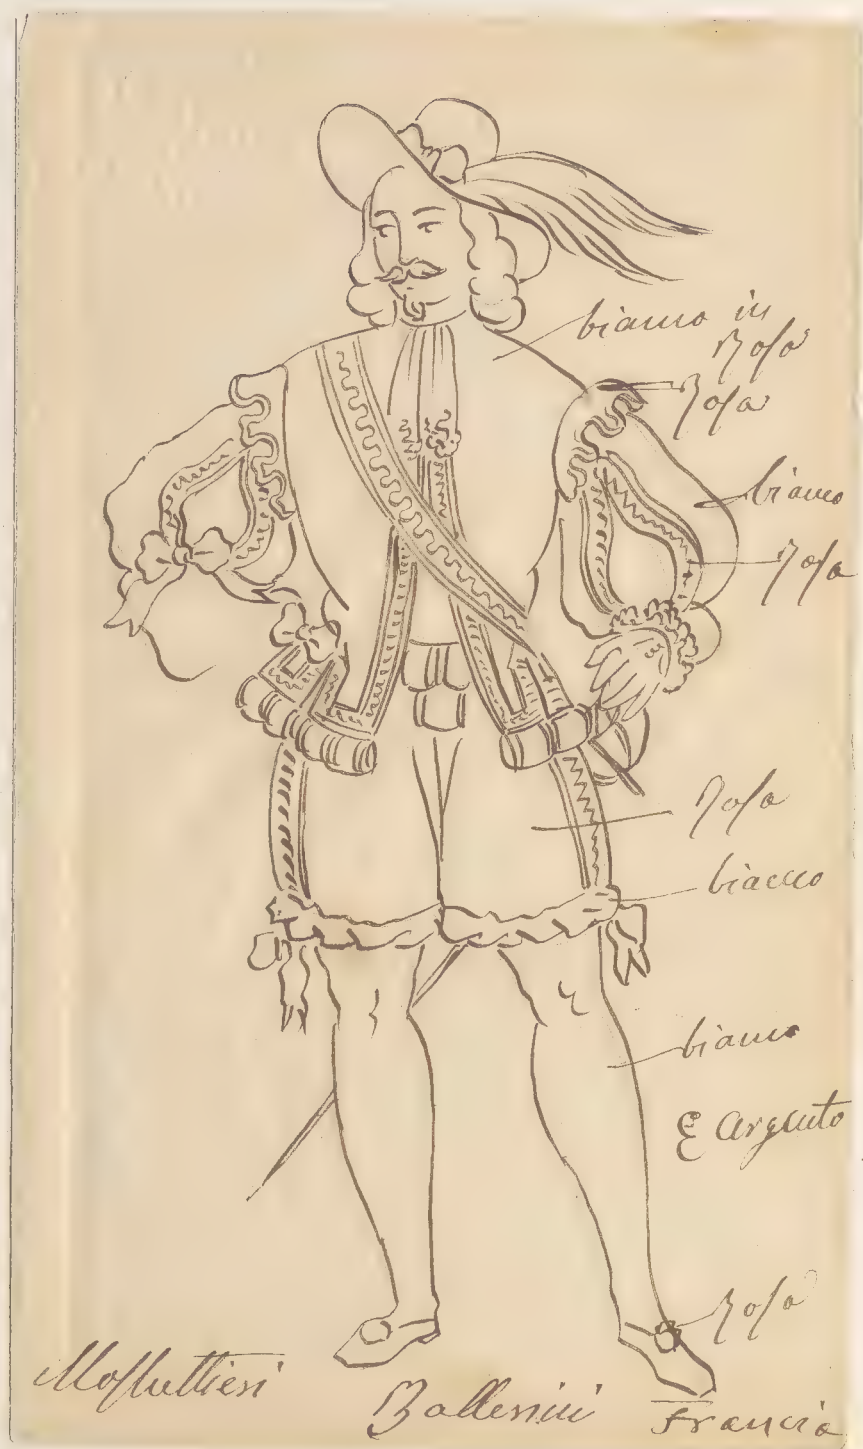 bianco in
Rosa
Rosa
bianco
Rosa
Rosa
bianco
bianco
E argento
Rosa
Moskettieri
Ballerini
Francia